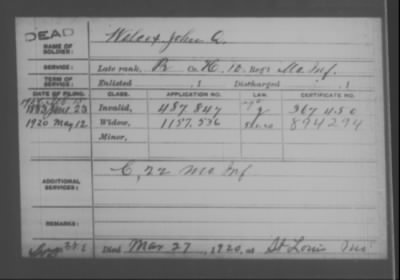 DEAD
NAME OF SOLDIER: Wilcox, John C.
SERVICE: Late rank, Co. H, 10 Reg't Mo. Inf.
TERM OF SERVICE: Enlisted , 1 Discharged , 1
DATE OF FILING. CLASS. APPLICATION NO. LAW. CERTIFICATE NO.
1883 June 23 Invalid, 487.847 367450
1920 May 12 Widow, 1157.536 894294
Minor,
ADDITIONAL SERVICES: C, 22 Mo Inf
REMARKS:
Died Mar 27, 1920, at St Louis Mo